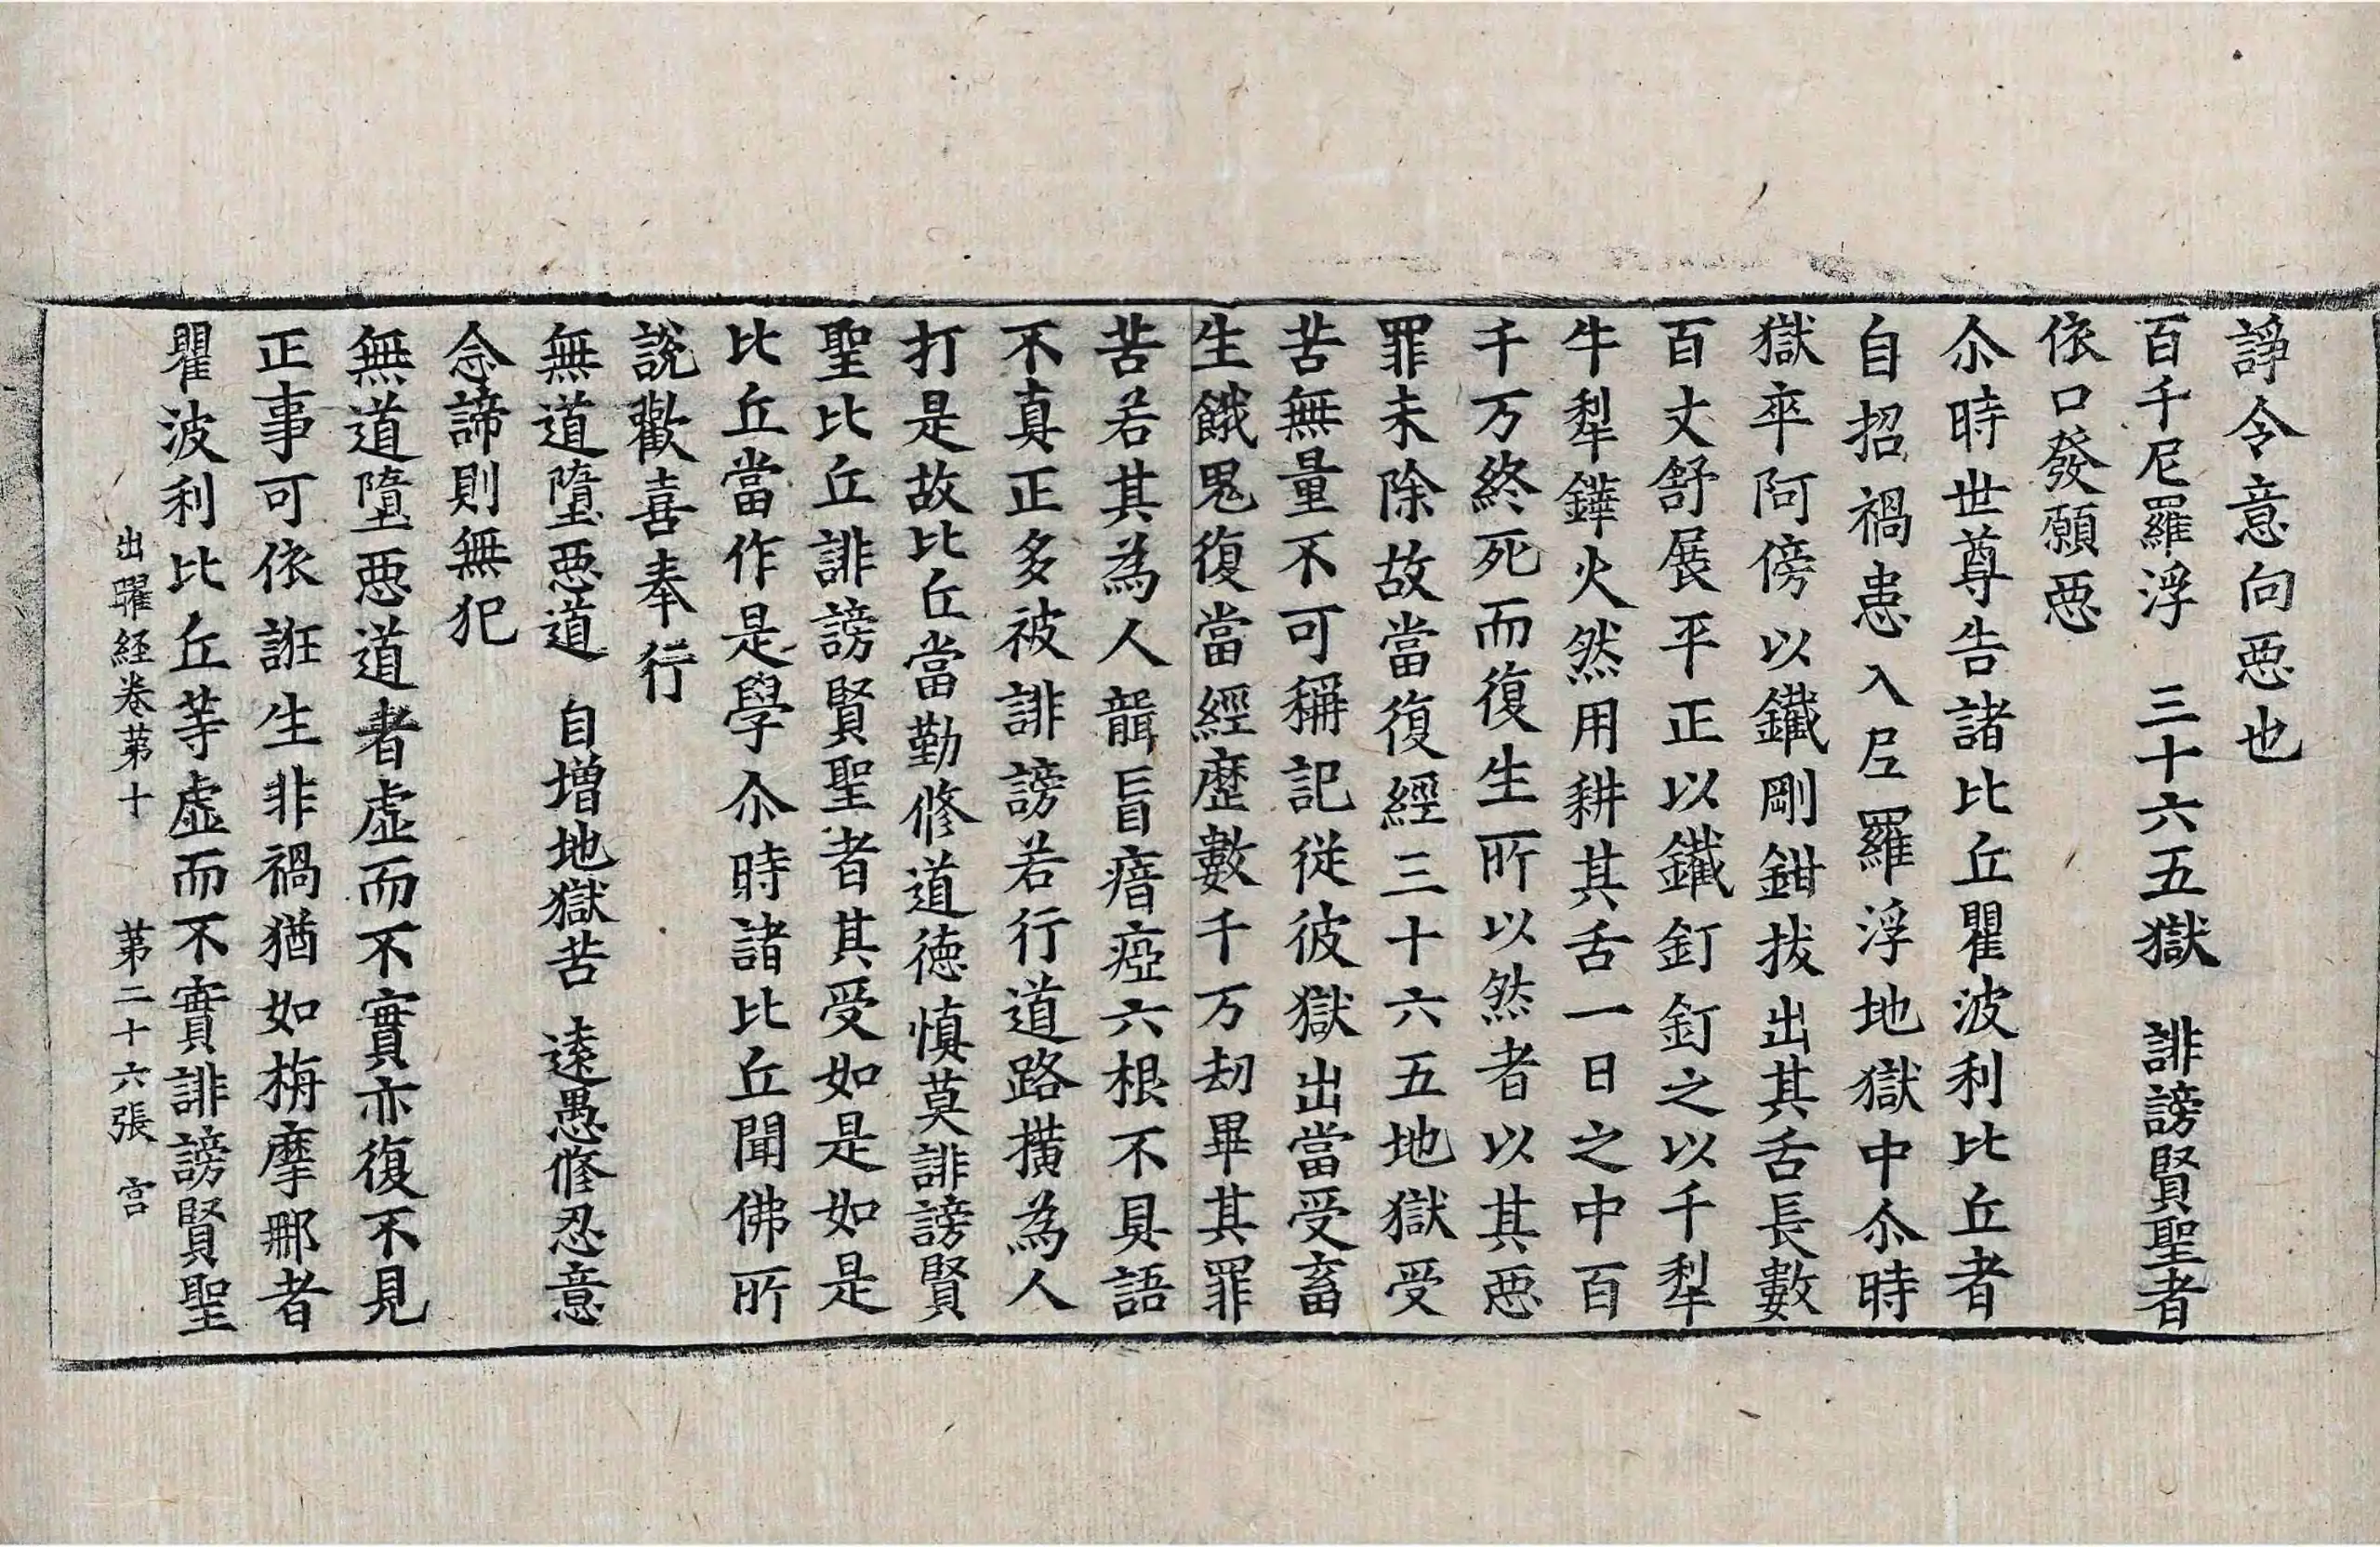 諍令意向惡也
百千尼羅浮　三十六五獄　誹謗賢聖者
依口發願惡
尒時世尊告諸比丘瞿波利比丘者
自招禍患入尼羅浮地獄中尒時
獄卒阿傍以鐵剛鉗拔出其舌長數
百丈舒展平正以鐵釘釘之以千犁
牛犁鏵火然用耕其舌一日之中百
千万終死而復生所以然者以其惡
罪未除故當復經三十六五地獄受
苦無量不可稱記從彼獄出當受畜
生餓鬼復當經歷數千万劫畢其罪
苦若其為人聾盲瘖瘂六根不具語
不真正多被誹謗若行道路橫為人
打是故比丘當勤修道德慎莫誹謗賢
聖比丘誹謗賢聖者其受如是如是
比丘當作是學尒時諸比丘聞佛所
說歡喜奉行
無道墮惡道　自增地獄苦　遠愚修忍意
念諦則無犯
無道墮惡道者虛而不實亦復不見
正事可依誑生非禍猶如栴摩那者
瞿波利比丘等虛而不實誹謗賢聖
出曜経卷苐十　苐二十六張　宫